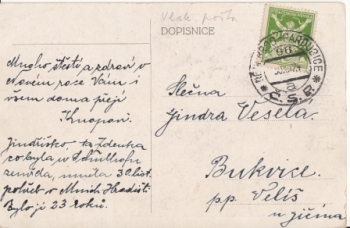 Vlak. pošta
DOPISNICE
Mnoho štěstí a zdraví v
Novém roce Vám i
všem doma přejí
Knapovi.
Zdenka
co byla v
zemřela, umřela 30. list.
pohřeb v Mnich. Hradišti
Bylo jí 23 roků.
Slečna
Jindra Veselá
Bukvice
p.p. Veliš
u Jičína